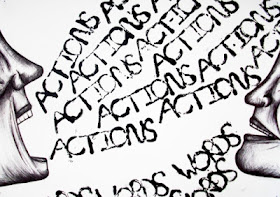 ACTIONS ACTIONS
ACTIONS ACTIONS
ACTIONS ACTIONS ACTIONS
ACTIONS ACTIONS
ACTIONS ACTIONS
WORDS WORDS
WORDS